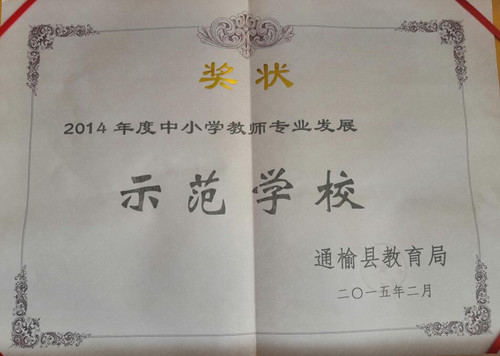 奖状
2014年度中小学教师专业发展
示范学校
通榆县教育局
二〇一五年二月